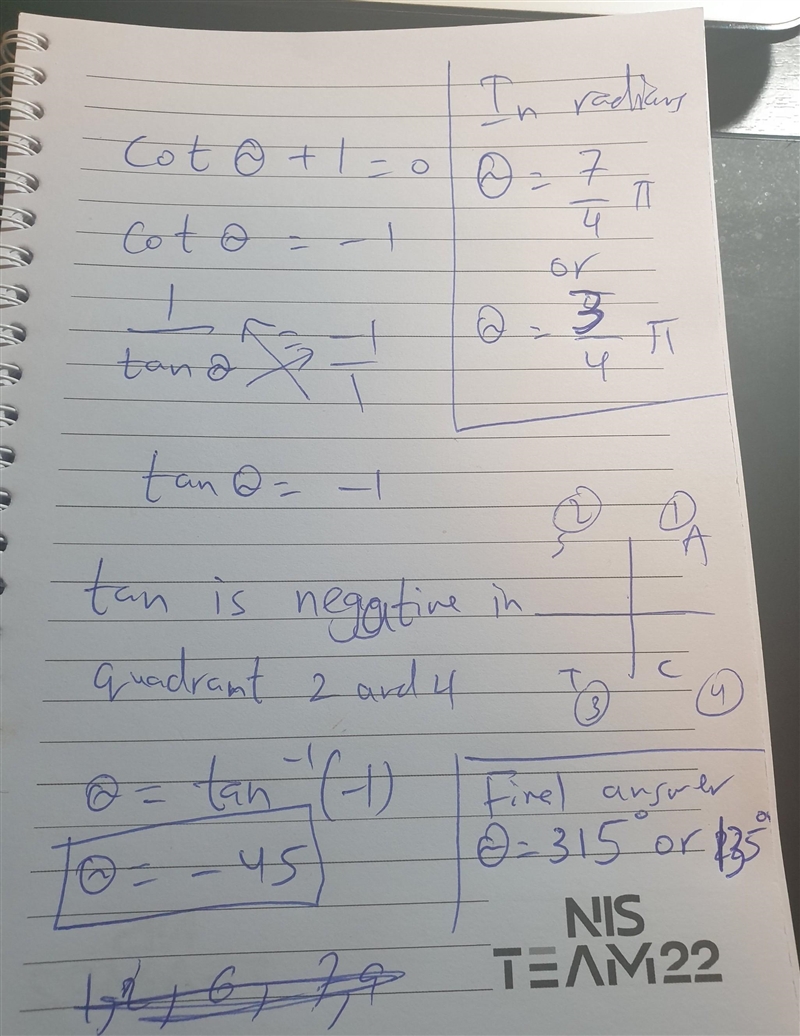 Cot θ + 1 = 0
cot θ = -1
1/tan θ = -1/1
tan θ = -1
tan is negative in
quadrant 2 and 4
θ = tan⁻¹(-1)
θ = - 45
In radians
θ = 7/4 π
or
θ = 3/4 π
② ①
S A
T C
③ ④
Final answer
θ = 315° or 135°
NIS
TEAM22